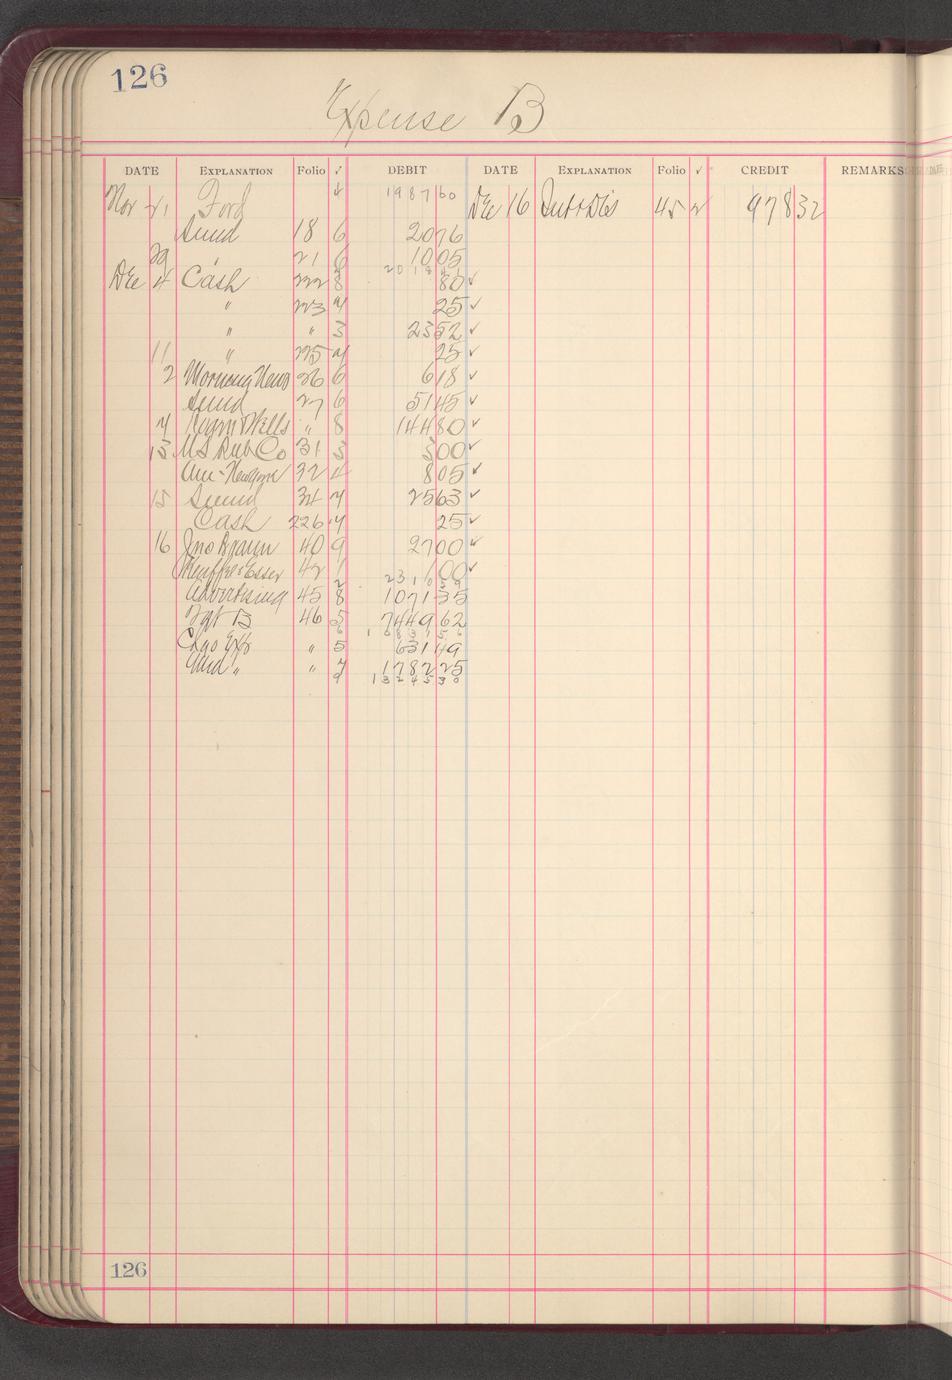 126
Expense B
DATE EXPLANATION Folio ✓ DEBIT DATE EXPLANATION Folio ✓ CREDIT REMARKS
Nov 21 Ford ✓ 1987 60 Dec 16 Int & Dis 45 2 978 32
Sund 18 6 20 76
29 21 6 10 05
20 18 41
Dec 4 Cash 222 8 80 ✓
" 223 4 25 ✓
" " 3 23 52 ✓
11 " 225 4 25 ✓
2 Morning News 26 6 6 18 ✓
Sund 27 6 51 45 ✓
4 & Wells " 8 144 80 ✓
13 US Rub Co 31 3 3 00 ✓
32 4 8 05 ✓
15 Sund 34 4 25 63 ✓
Cash 226 4 25 ✓
16 Jno Braun 40 9 27 00 ✓
Keuffel & Esser 42 1 1 00 ✓
2 23 10 59
Advertising 45 8 1071 35
B 46 5 7449 62
6 1 08 31 56
" 5 631 49
" " 7 1782 25
9 1 32 45 30
126